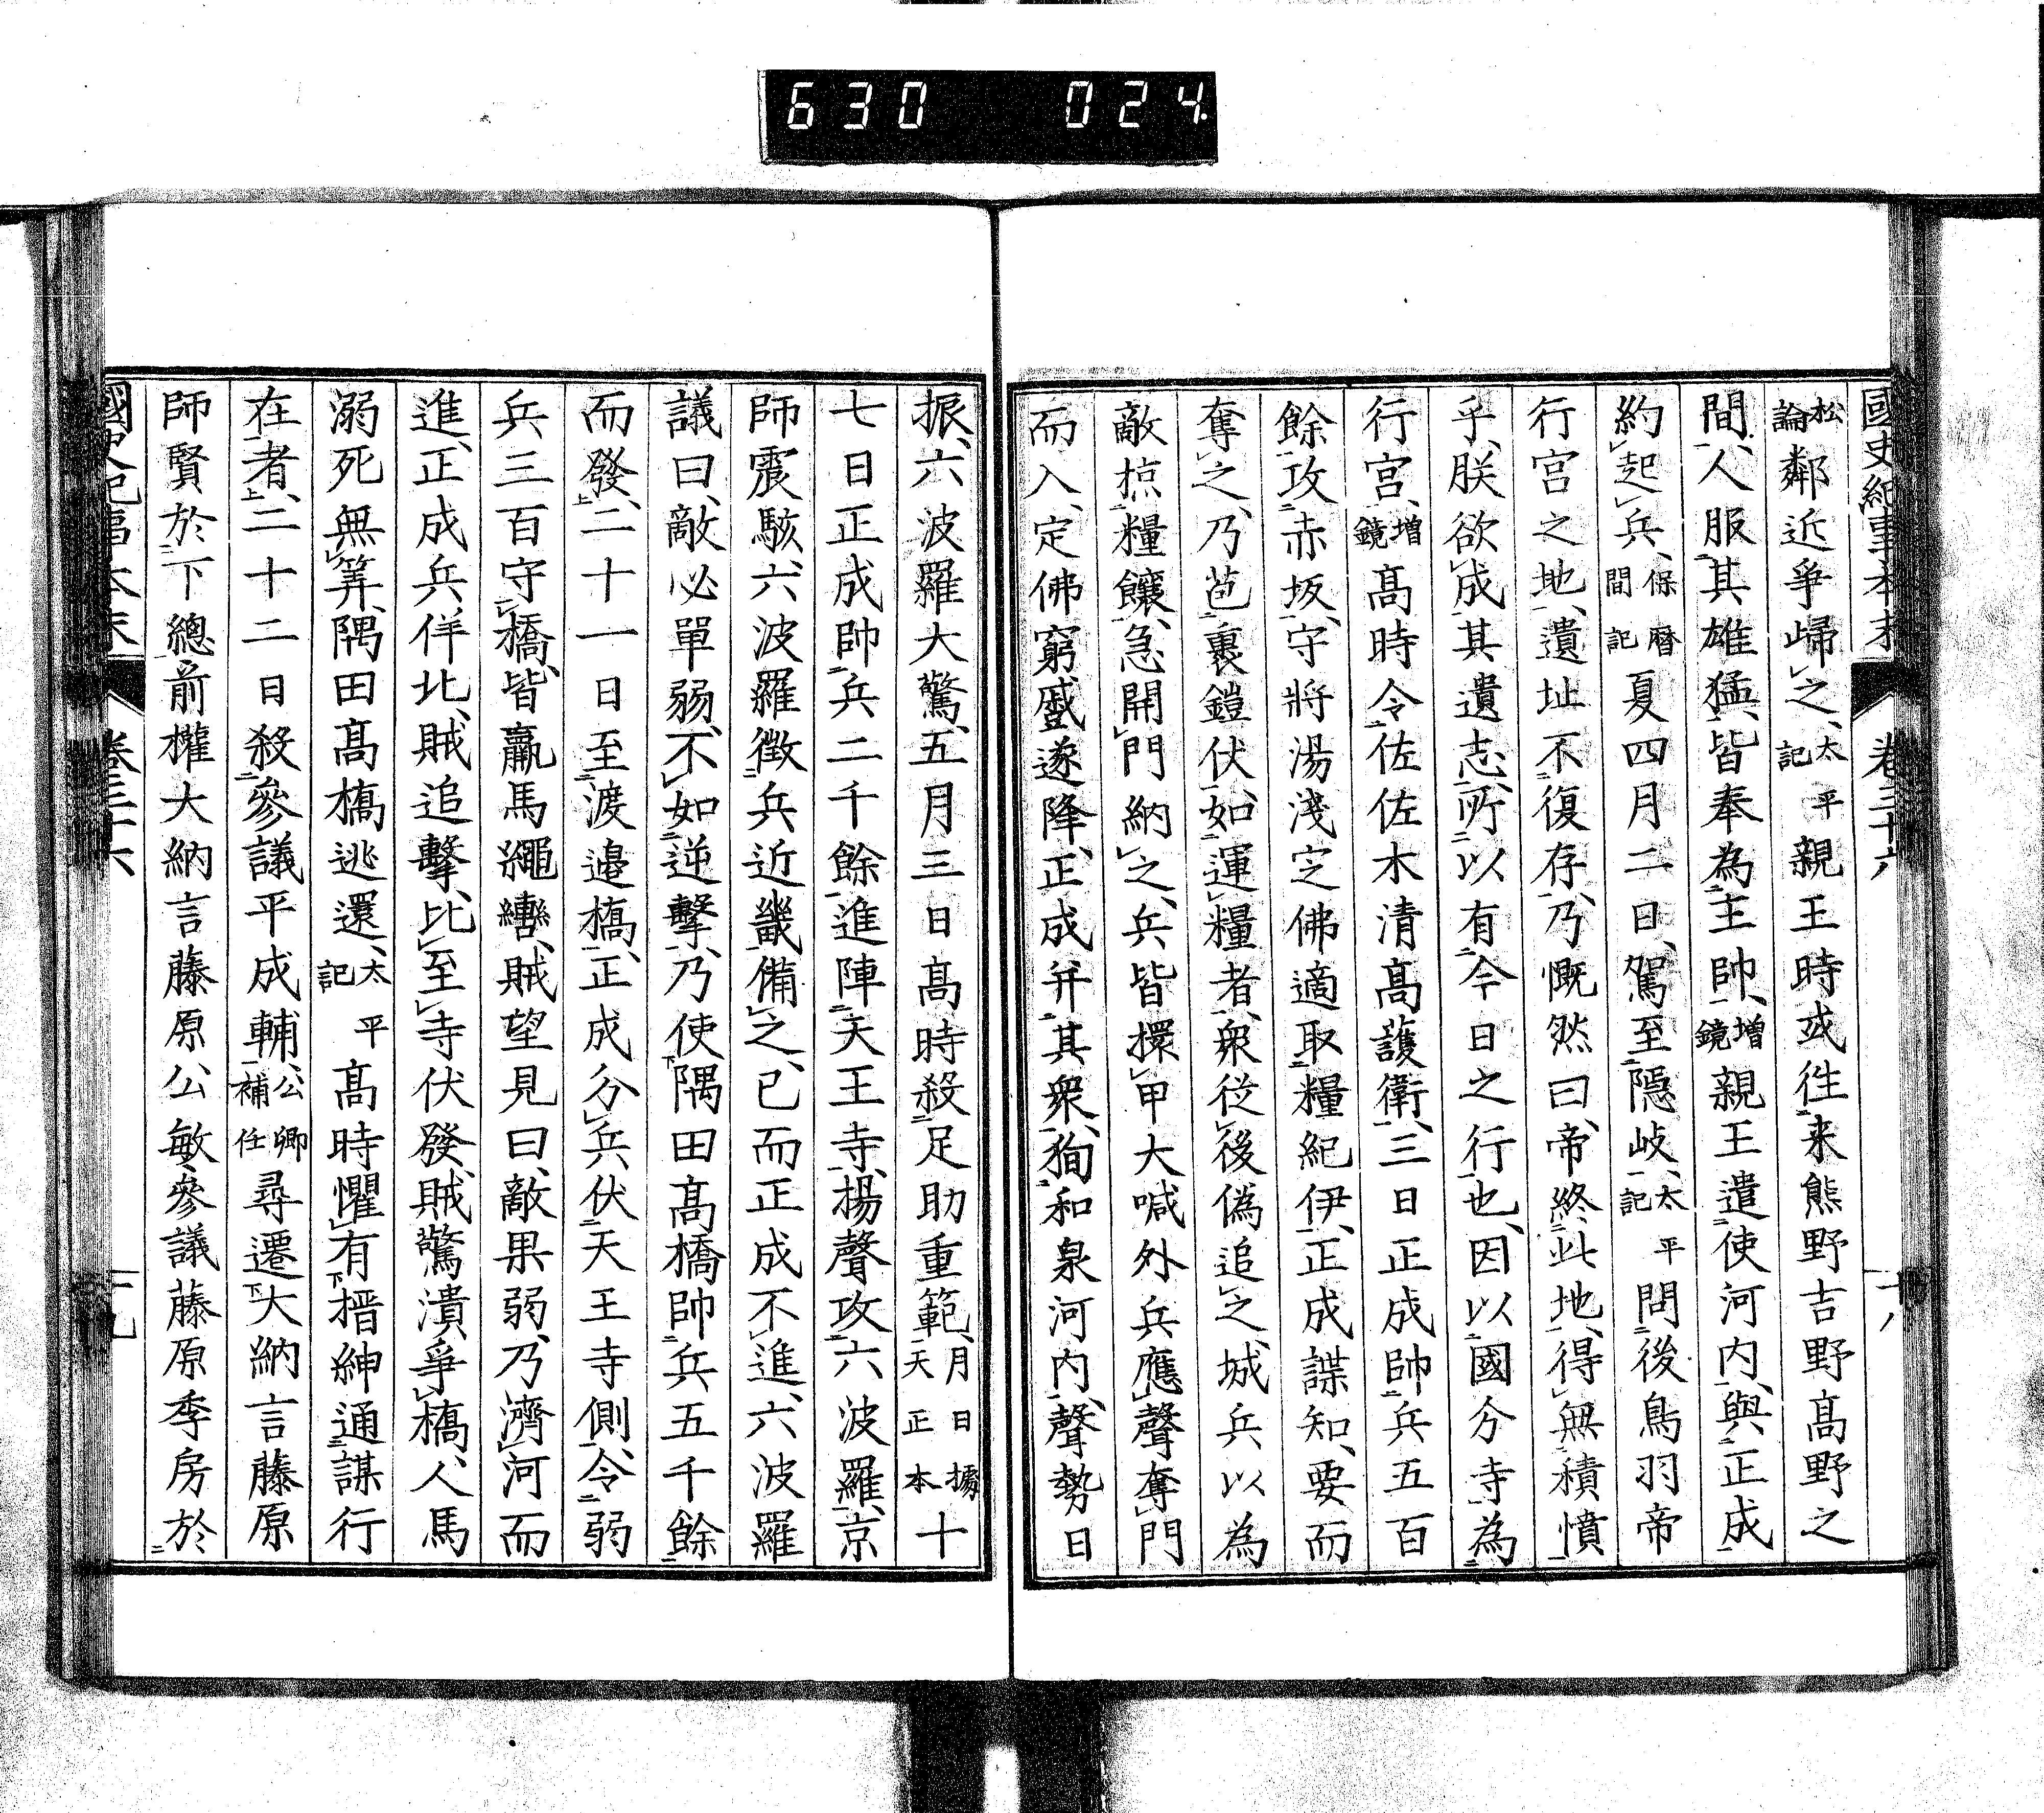 630 024
國史紀事本末 卷三十六 十八
松論鄰近爭歸之、太平記親王時或徃来熊野吉野髙野之
間、人服其雄猛、皆奉為主帥、增鏡親王遣使河内、與正成
約起兵、保曆間記夏四月二日、駕至隱岐、太平記問後鳥羽帝
行宮之地、遺址不復存、乃慨然曰、帝終此地、得無積憤
乎、朕欲成其遺志、所以有今日之行也、因以國分寺為
行宮、增鏡髙時令佐佐木清髙護衛、三日正成帥兵五百
餘攻赤坂、守將湯淺定佛適取糧紀伊、正成諜知、要而
奪之、乃苞裹鎧伏、如運糧者、衆從後偽追之、城兵以為
敵掠糧饟、急開門納之、兵皆擐甲大喊外兵應聲奪門
而入、定佛窮蹙遂降、正成并其衆、狥和泉河内、聲勢日
振、六波羅大驚、五月三日髙時殺足助重範、月日據天正本十
七日正成帥兵二千餘進陣天王寺、揚聲攻六波羅、京
師震駭、六波羅徴兵近畿備之、已而正成不進、六波羅
議曰、敵必單弱、不如逆擊、乃使隅田髙橋帥兵五千餘
而發、二十一日至渡邉橋、正成分兵伏天王寺側、令弱
兵三百守橋、皆羸馬繩轡、賊望見曰、敵果弱、乃濟河而
進、正成兵佯北、賊追擊、比至寺伏發、賊驚潰爭橋、人馬
溺死無筭、隅田髙橋逃還、太平記髙時懼有搢紳通謀行
在者、二十二日殺參議平成輔、公卿補任尋遷大納言藤原
師賢於下總前權大納言藤原公敏參議藤原季房於
國史紀事本末 卷三十六 十九